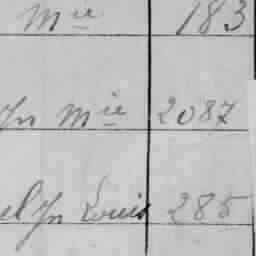 Mie 183
Jn Mie 2087
el Jn Louis 285